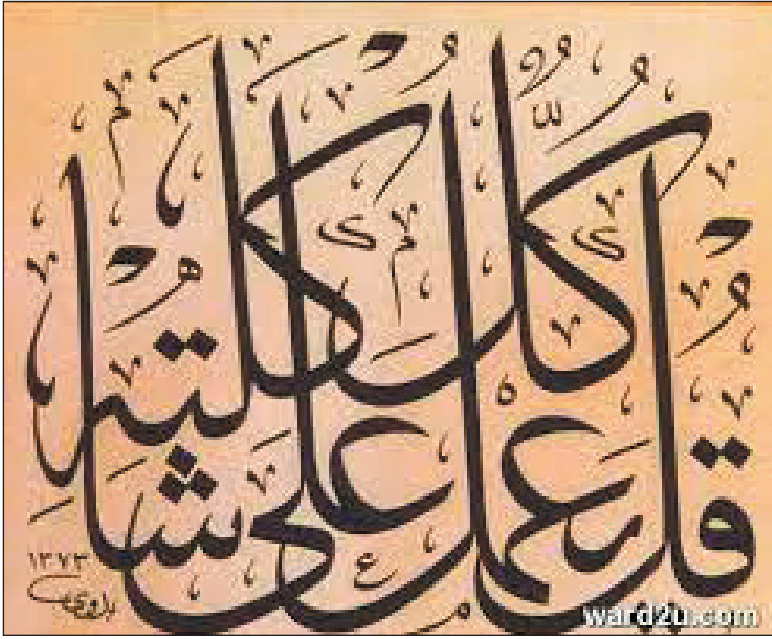 قُلْ كُلٌّ يَعْمَلُ عَلَى شَاكِلَتِهِ
١٣٧٣
بدوي
ward2u.com